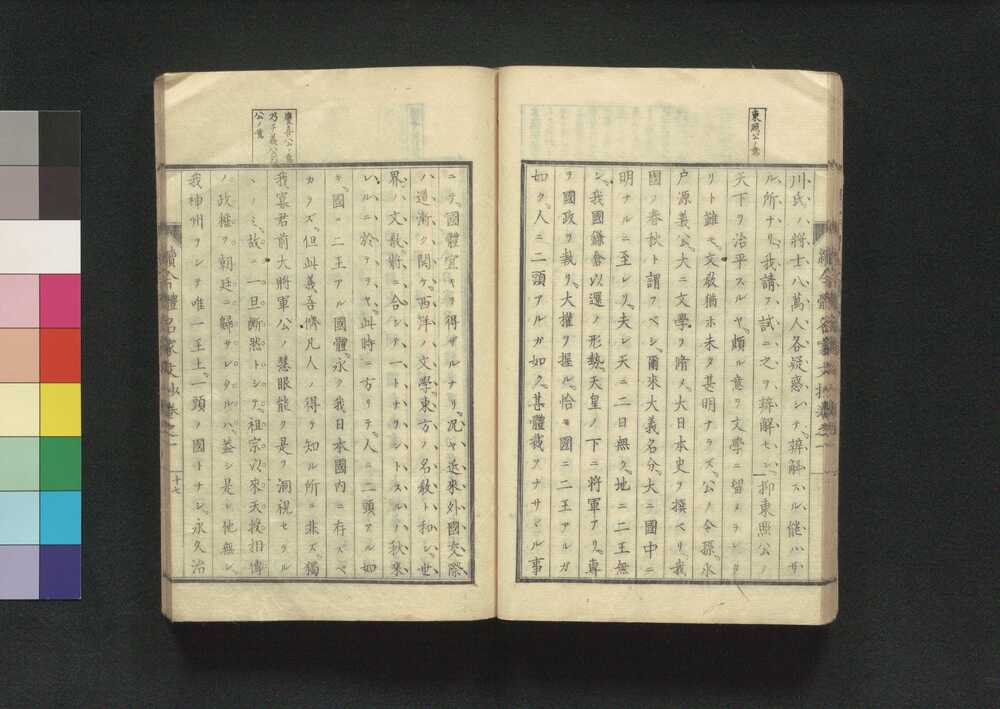 東照公ノ意
川氏ハ將士八萬人、各疑惑シテ、辨解スル能ハザ
ル所ナリ、我請フ試ニ之ヲ辨解セン、抑東照公ノ
天下ヲ治平スルヤ、頗ル意ヲ文學ニ留メラレタ
リト雖モ、文敎猶ホ未タ甚明ナラズ、公ノ令孫、水
戸源義公、大ニ文學ヲ脩メ、大日本史ヲ撰ベリ、我
國ノ春秋ト謂フベシ、爾來大義名分、大ニ國中ニ
明ナルニ至レリ、夫レ天ニ二日無ク、地ニ二王無
シ、我國鎌倉以還ノ形勢、天皇ノ下ニ將軍アリ、專
ラ國政ヲ執リ、大權ヲ握ル、恰モ國ニ二王アルガ
如ク、人ニ二頭アルガ如ク、甚體裁ヲナサヾル事
續今體名家文抄卷之一
慶喜公ノ意
乃チ義公ノ
公ノ意
ニテ、國體宜キヲ得ザルナリ、況ヤ近來外國交際
ハ道漸ク開ケ、西洋ノ文學、東方ノ名敎ト和シ、世
界ハ文亂、將ニ合シテ一トナリントスルノ秋來
レルニ於テヲヤ、此時ニ方リテ、人ニ二頭アル如
キ、國ニ二王アル國體、永ク我日本國内ニ存スベ
カラズ、但此義吾儕凡人ノ得テ知ル所ニ非ズ、獨
我寡君前大將軍公ノ慧眼能ク是ヲ洞視セラル
ヽノミ、故ニ一旦斷然トシテ、祖宗以來天授相傳
ノ政權ヲ朝廷ニ歸サレタルハ、蓋シ是レ他無シ、
我神州ヲシテ唯一王土一頭ノ國トナシ、永久治
續今體名家文抄卷之一
十七